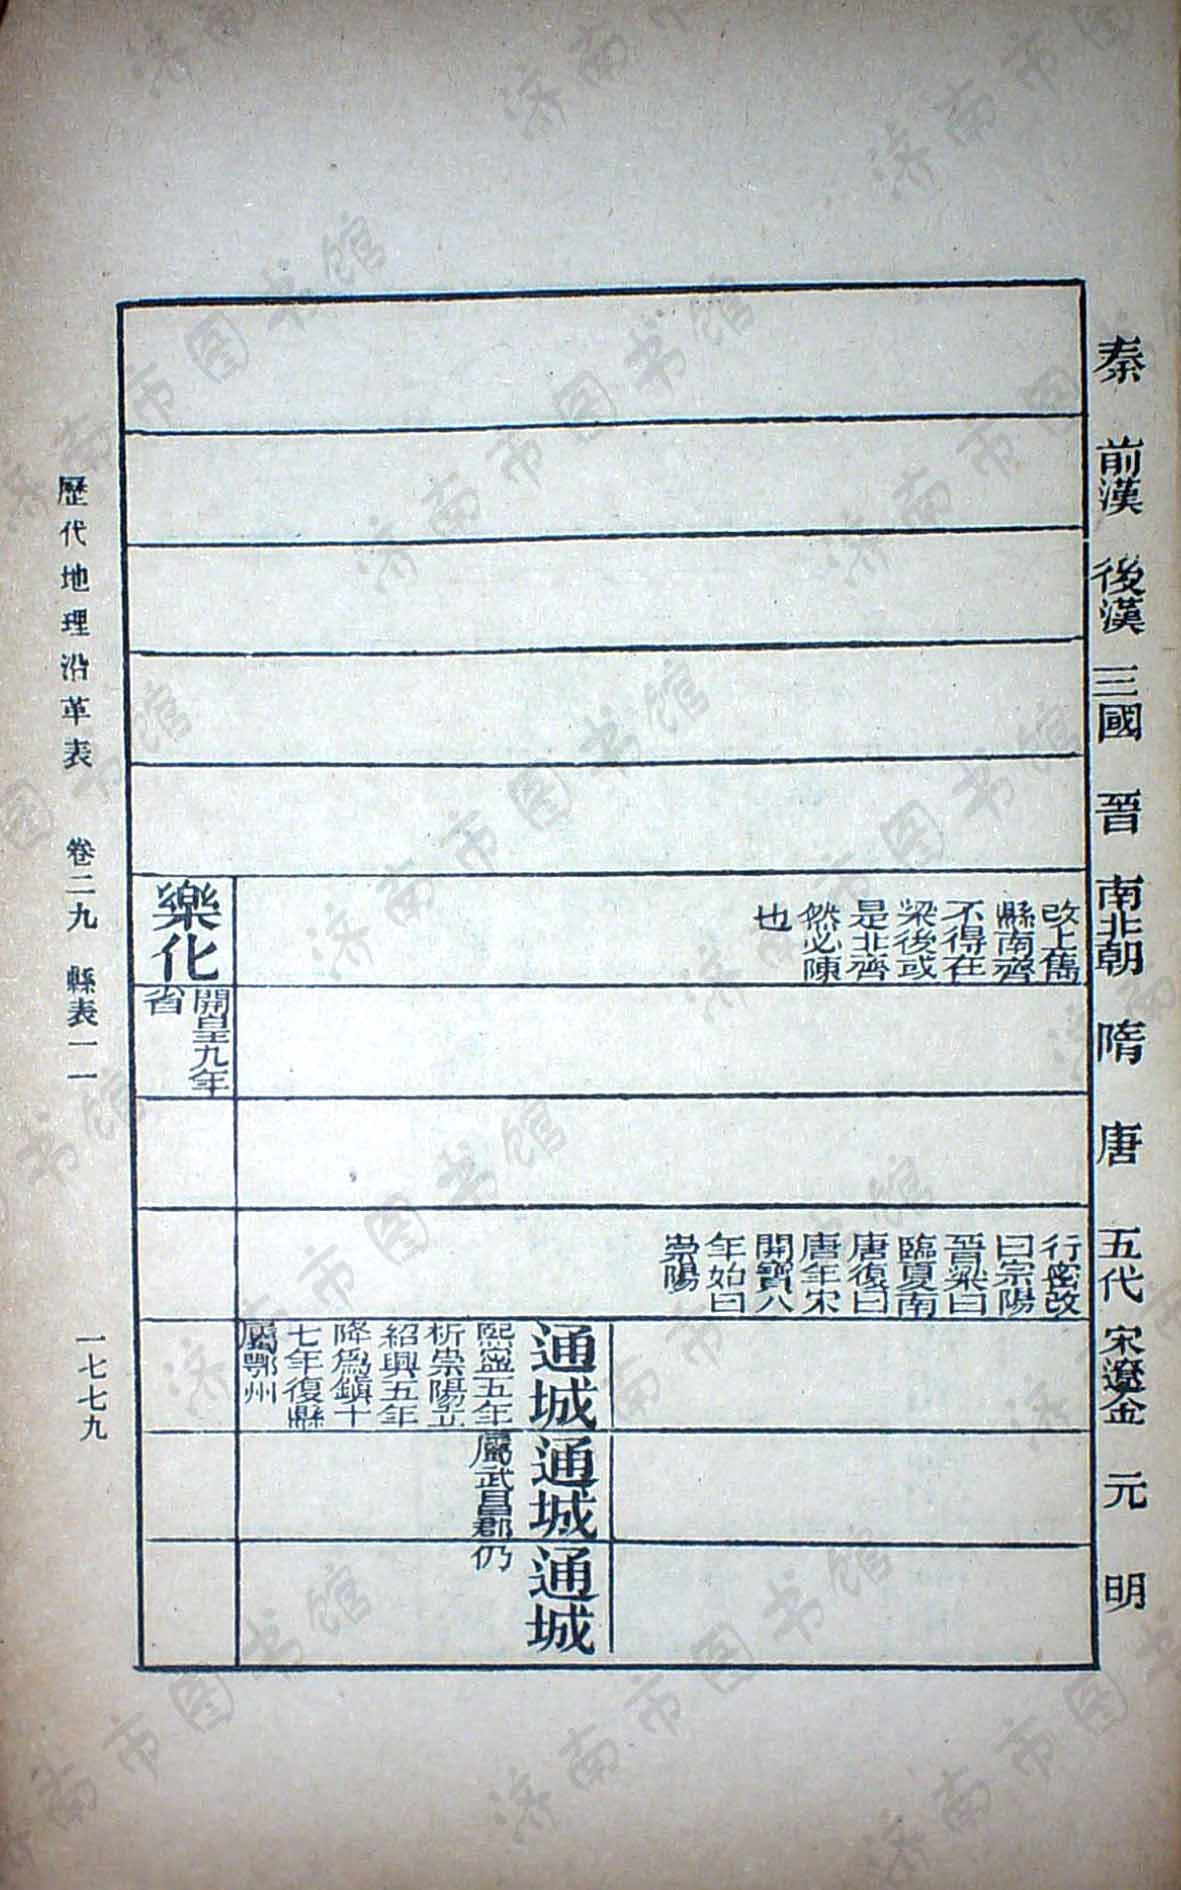 秦
前漢
後漢
三國
晉
南北朝
隋
唐
五代
宋遼金
元
明
改上雋
縣南齊
不得在
梁後或
是北齊
然必陳
也
行密改
曰崇陽
晉梁曰
臨夏南
唐復曰
唐年宋
開寶八
年始曰
崇陽
通城
熙寧五年
析崇陽立
紹興五年
降爲鎮十
七年復縣
屬鄂州
通城
屬武昌郡
通城
仍
樂化
開皇九年
省
歷代地理沿革表 卷二九 縣表一一 一七七九
济南市图书馆